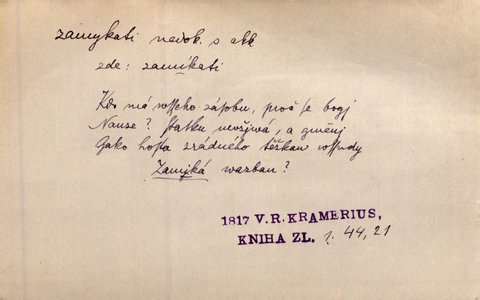 zámykati nedok. s akk
zde: zamíkati
Kdo má wsseho zásobu, proč se bogj
Nauze? statku neužjwá, a gměnj
Gako hosta zrádného těžkau wssudy
Zamjká wazbau?
1817 V. R. KRAMERIUS,
KNIHA ZL. 1. 44, 21